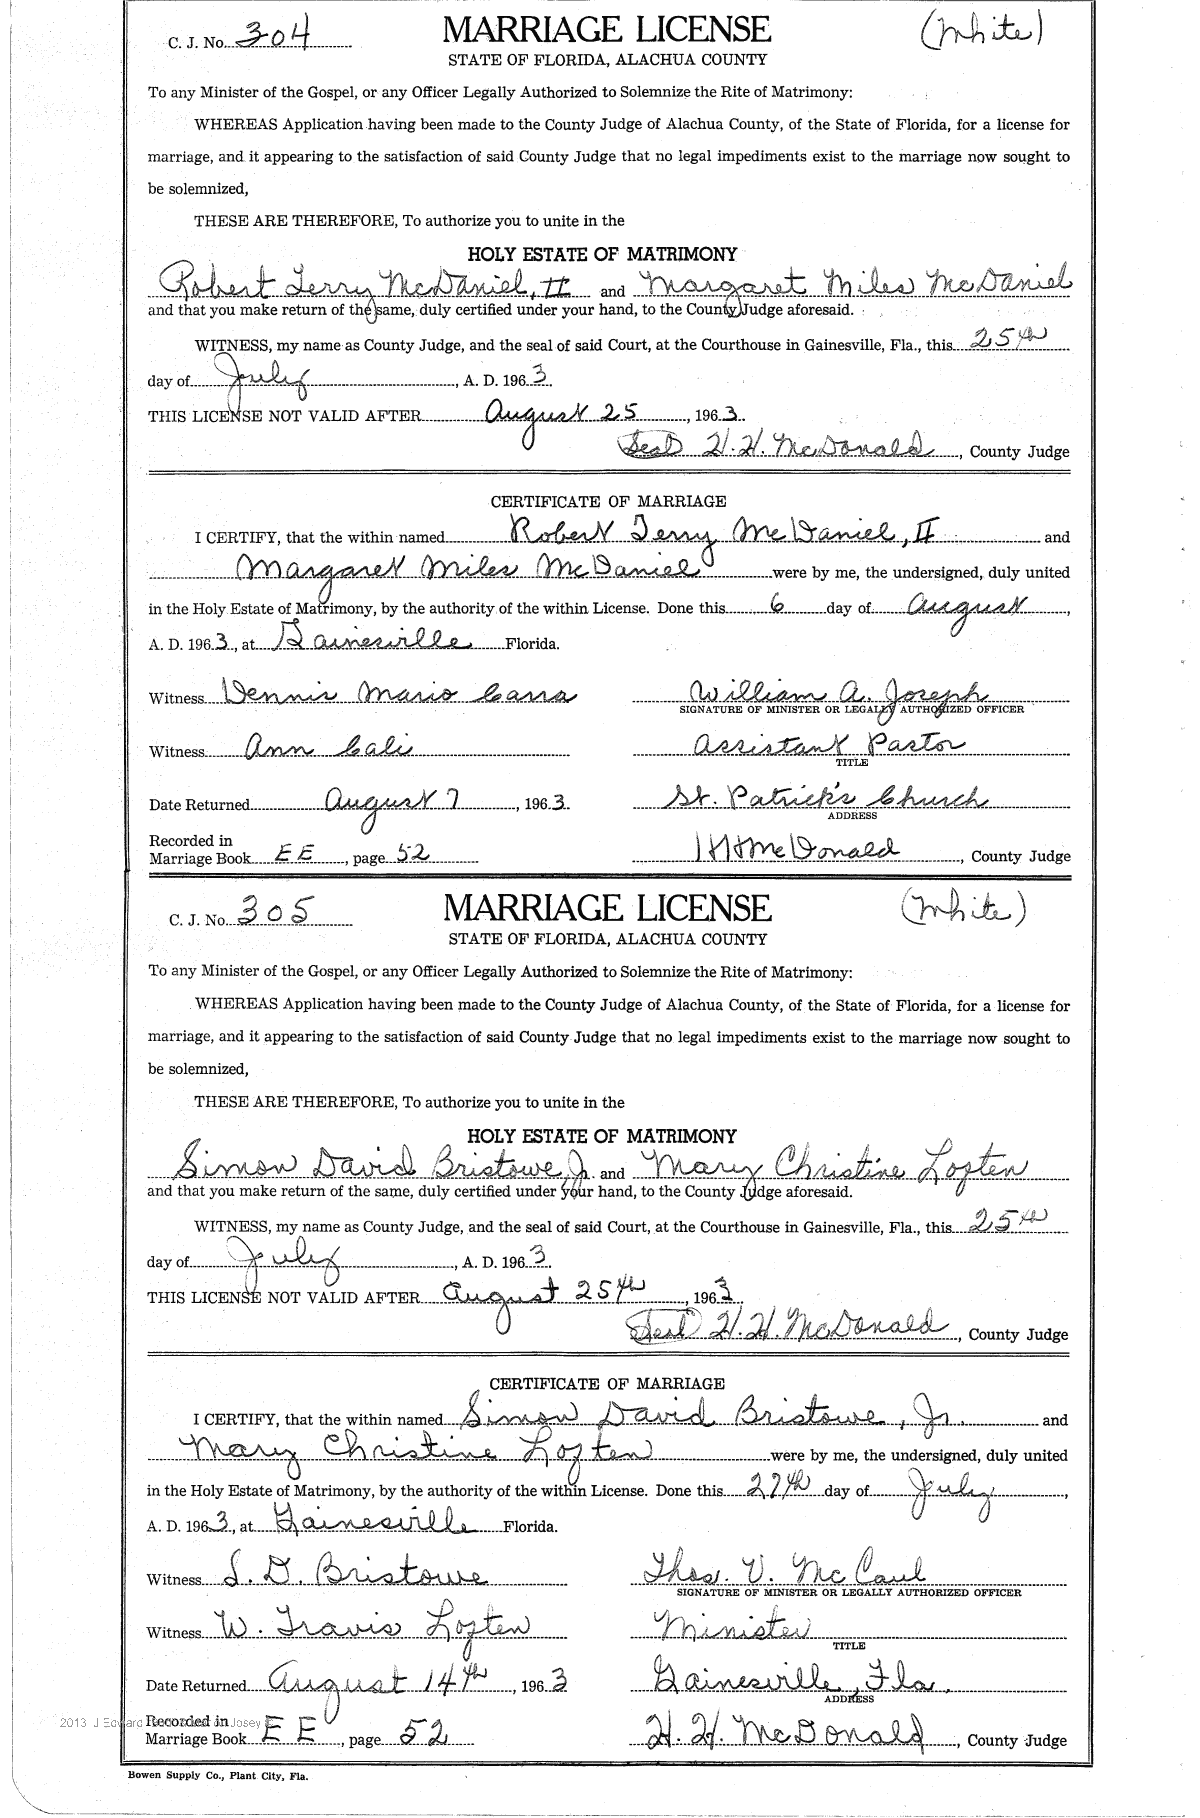 C. J. No. 304 MARRIAGE LICENSE (White)
STATE OF FLORIDA, ALACHUA COUNTY
To any Minister of the Gospel, or any Officer Legally Authorized to Solemnize the Rite of Matrimony:
WHEREAS Application having been made to the County Judge of Alachua County, of the State of Florida, for a license for
marriage, and it appearing to the satisfaction of said County Judge that no legal impediments exist to the marriage now sought to
be solemnized,
THESE ARE THEREFORE, To authorize you to unite in the
HOLY ESTATE OF MATRIMONY
Robert Terry McDaniel, II and Margaret Miles McDaniel
and that you make return of the same, duly certified under your hand, to the County Judge aforesaid.
WITNESS, my name as County Judge, and the seal of said Court, at the Courthouse in Gainesville, Fla., this 25th
day of July, A. D. 1963.
THIS LICENSE NOT VALID AFTER August 25, 1963.
Seal H. H. McDonald, County Judge
CERTIFICATE OF MARRIAGE
I CERTIFY, that the within named Robert Terry McDaniel, II and
Margaret Miles McDaniel were by me, the undersigned, duly united
in the Holy Estate of Matrimony, by the authority of the within License. Done this 6 day of August,
A. D. 1963, at Gainesville Florida.
Witness Dennis Mario William A. Joseph
SIGNATURE OF MINISTER OR LEGALLY AUTHORIZED OFFICER
Witness Ann Cali Assistant Pastor
TITLE
Date Returned August 7, 1963. St. Patrick's Church
ADDRESS
Recorded in
Marriage Book EE, page 52 HH McDonald, County Judge
C. J. No. 305 MARRIAGE LICENSE (White)
STATE OF FLORIDA, ALACHUA COUNTY
To any Minister of the Gospel, or any Officer Legally Authorized to Solemnize the Rite of Matrimony:
WHEREAS Application having been made to the County Judge of Alachua County, of the State of Florida, for a license for
marriage, and it appearing to the satisfaction of said County Judge that no legal impediments exist to the marriage now sought to
be solemnized,
THESE ARE THEREFORE, To authorize you to unite in the
HOLY ESTATE OF MATRIMONY
Simon David Bristowe, Jr. and Mary Christine Loften
and that you make return of the same, duly certified under your hand, to the County Judge aforesaid.
WITNESS, my name as County Judge, and the seal of said Court, at the Courthouse in Gainesville, Fla., this 25th
day of July, A. D. 1963.
THIS LICENSE NOT VALID AFTER August 25th, 1963.
Seal H. H. McDonald, County Judge
CERTIFICATE OF MARRIAGE
I CERTIFY, that the within named Simon David Bristowe, Jr. and
Mary Christine Loften were by me, the undersigned, duly united
in the Holy Estate of Matrimony, by the authority of the within License. Done this 27th day of July,
A. D. 1963, at Gainesville Florida.
Witness S. D. Bristowe Thos. V. McCaul
SIGNATURE OF MINISTER OR LEGALLY AUTHORIZED OFFICER
Witness W. Travis Loften Minister
TITLE
Date Returned August 14th, 1963 Gainesville, Fla.
ADDRESS
Recorded in
Marriage Book EE, page 52 H. H. McDonald, County Judge
Bowen Supply Co., Plant City, Fla.